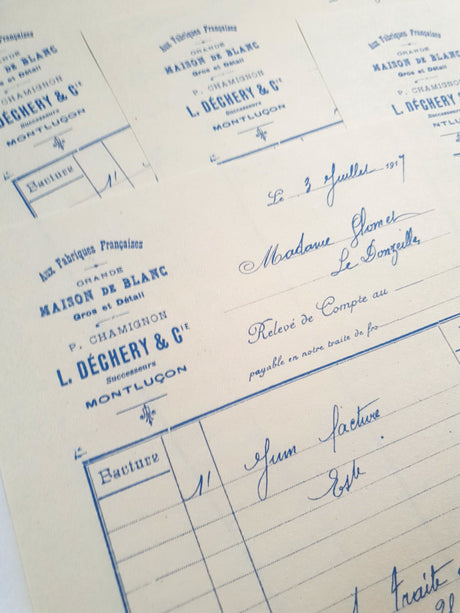 Aux Fabriques Françaises
GRANDE
MAISON DE BLANC
Gros et Détail
P. CHAMIGNON
DÉCHERY & Cie
Successeurs
MONTLUÇON
Facture
1'
Aux Fabriques Françaises
GRANDE
MAISON DE BLANC
Gros et Détail
P. CHAMIGNON
L. DÉCHERY & Cie
Successeurs
MONTLUÇON
Aux Fabriques Françaises
GRANDE
MAISON DE BLANC
Gros et Détail
P. CHAMIGNON
L. DÉCHERY
Successeurs
NTLUÇON
Le 3 Juillet 1917
Aux Fabriques Françaises
GRANDE
MAISON DE BLANC
Gros et Détail
P. CHAMIGNON
L. DÉCHERY & CIE
Successeurs
MONTLUÇON
Madame
Le Donzeilles
Relevé de Compte au
payable en notre traite de fro
Facture
1'
facture
traite